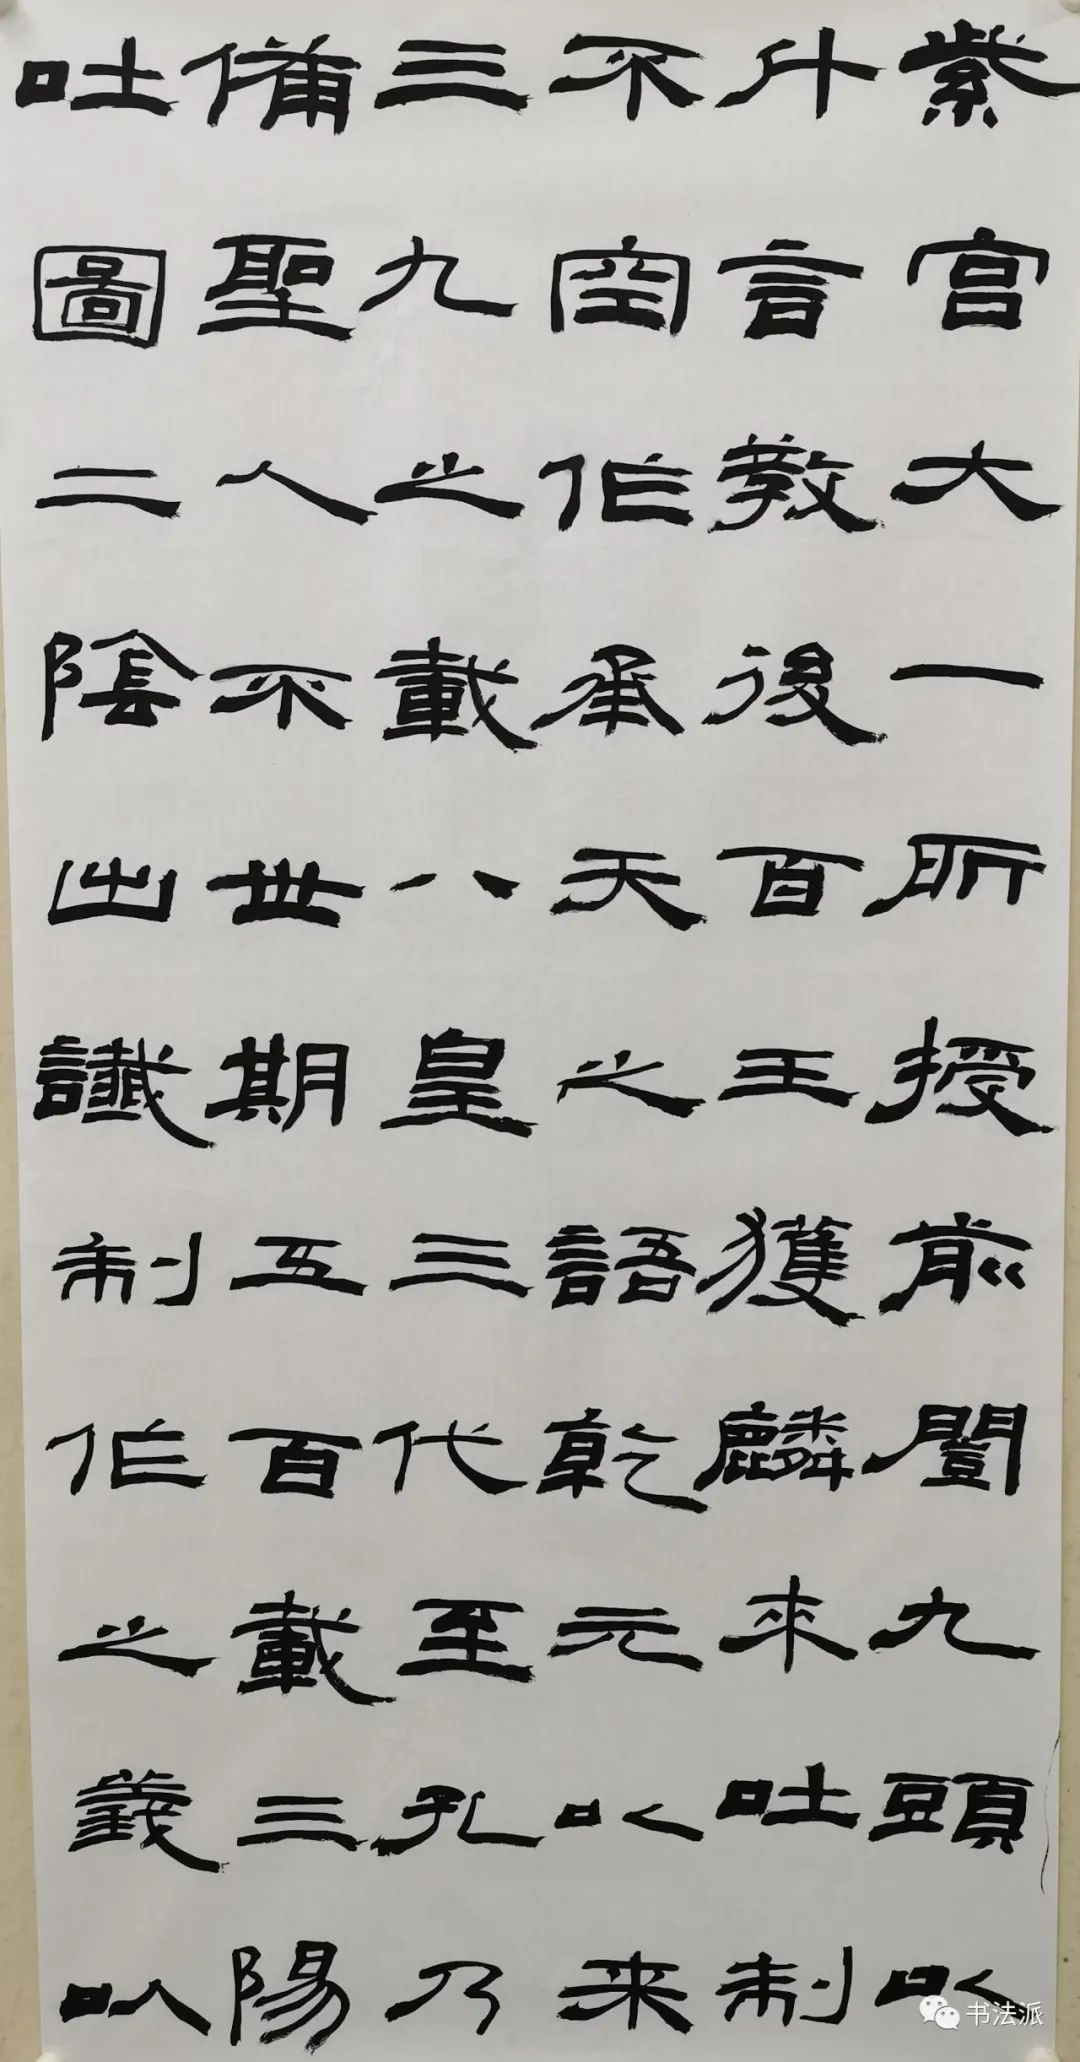 紫宫大一所授前闓九頭以
什言教後百王獲麟來吐制
不空作承天之語乾元以来
三九之載八皇三代至孔乃
備聖人不世期五百載三陽
吐圖二陰出讖制作之義以
书法派